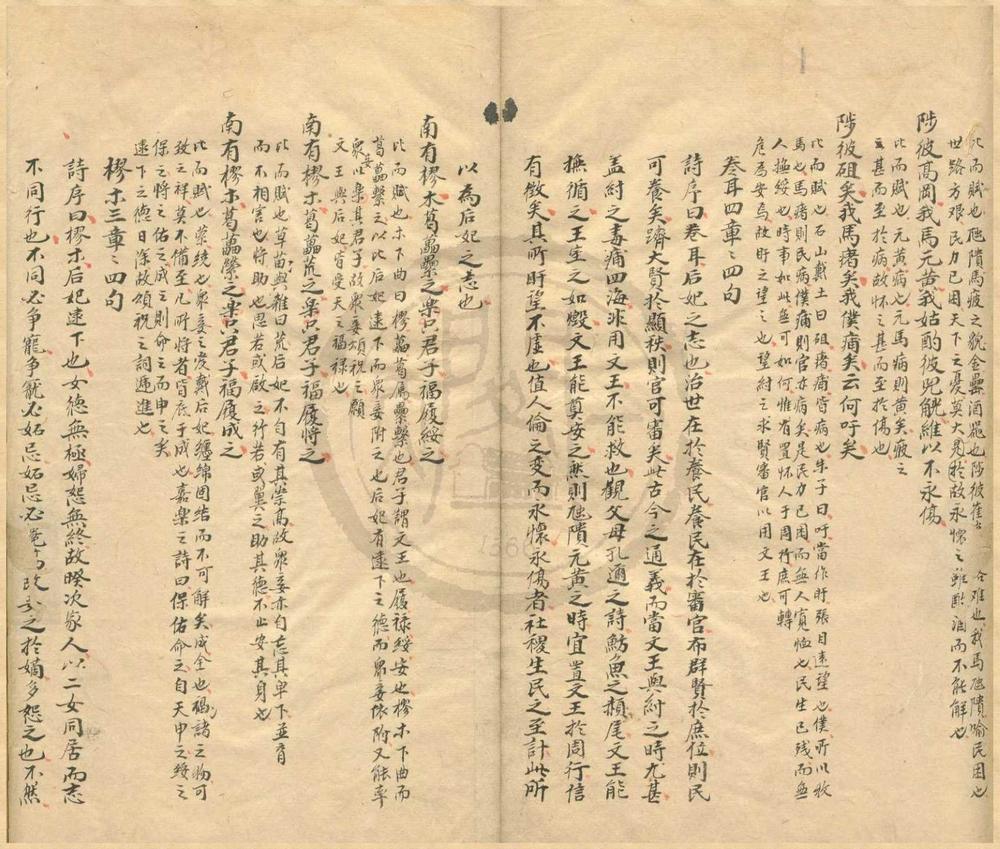 比而賦也虺隤馬疲之貌金罍酒器也陟彼崔 今难也我馬虺隤喻民困也
世路方艰民力已困天下之憂莫大焉於故永懷之雖飲酒而不能解也
陟彼髙岡我馬元黄我姑酌彼兕觥維以不永傷
比而賦也元黄病也元馬病則黄矣疲之
甚而至於病故怀之甚而至於傷也
陟彼砠矣我馬瘏矣我僕痡矣云何吁矣
比而賦也石山戴土曰砠瘏痡皆病也朱子曰吁當作盱張目遠望也僕所以牧
馬也馬瘏則民病僕痡則官亦病矣是民力已困而無人寛恤也民生已残而無
人撫綏也時事如此無可如何惟有置怀人于周行庶可轉
危為安焉故盱之望之也望紂之求賢審官以用文王也
卷耳四章章四句
詩序曰卷耳后妃之志也治世在於養民養民在於審官布群賢於庶位則民
可養矣躋大賢於顯秩則官可審矣此古今之通義而當文王與紂之時尤甚
盖紂之毒痡四海非用文王不能救也觀父母孔邇之詩魴魚之頳尾文王能
撫循之王室之如燬文王能奠安之然則虺隤元黄之時宜置文王於周行信
有徴矣其所盱望不虛也值人倫之变而永懷永傷者社稷生民之至計此所
以為后妃之志也
南有樛木葛藟纍之楽只君子福履綏之
比而賦也木下曲曰樛藟葛属纍繫也君子謂文王也履禄綏安也樛木下曲而
葛藟繫之以比后妃逮下而眾妾附之也后妃有逮下之德而眾妾依附又能率
眾妾以楽其君子故眾妾頌祝之願
文王與后妃皆受天之福禄也
南有樛木葛藟荒之楽只君子福履將之
比而賦也草苗與雜曰荒后妃不自有其崇高故眾妾亦自忘其卑下並育
而不相害也將助也思若或啟之行若或翼之助其德不止安其身也
南有樛木葛藟縈之楽只君子福履成之
比而賦也縈繞也眾妾之愛戴后妃纏綿固结而不可解矣成全也福諸之物可
致之祥莫不備至凡所將者皆底于成也嘉楽之詩曰保佑命之自天申之綏之
保之將之佑之成之則命之而申之矣
逮下之德日深故頌祝之詞遞進也
樛木三章章四句
詩序曰樛木后妃逮下也女德無極婦怨無終故睽次家人以二女同居而志
不同行也不同必争寵争寵必妬忌妬忌必 之於嫡多怨之也不然